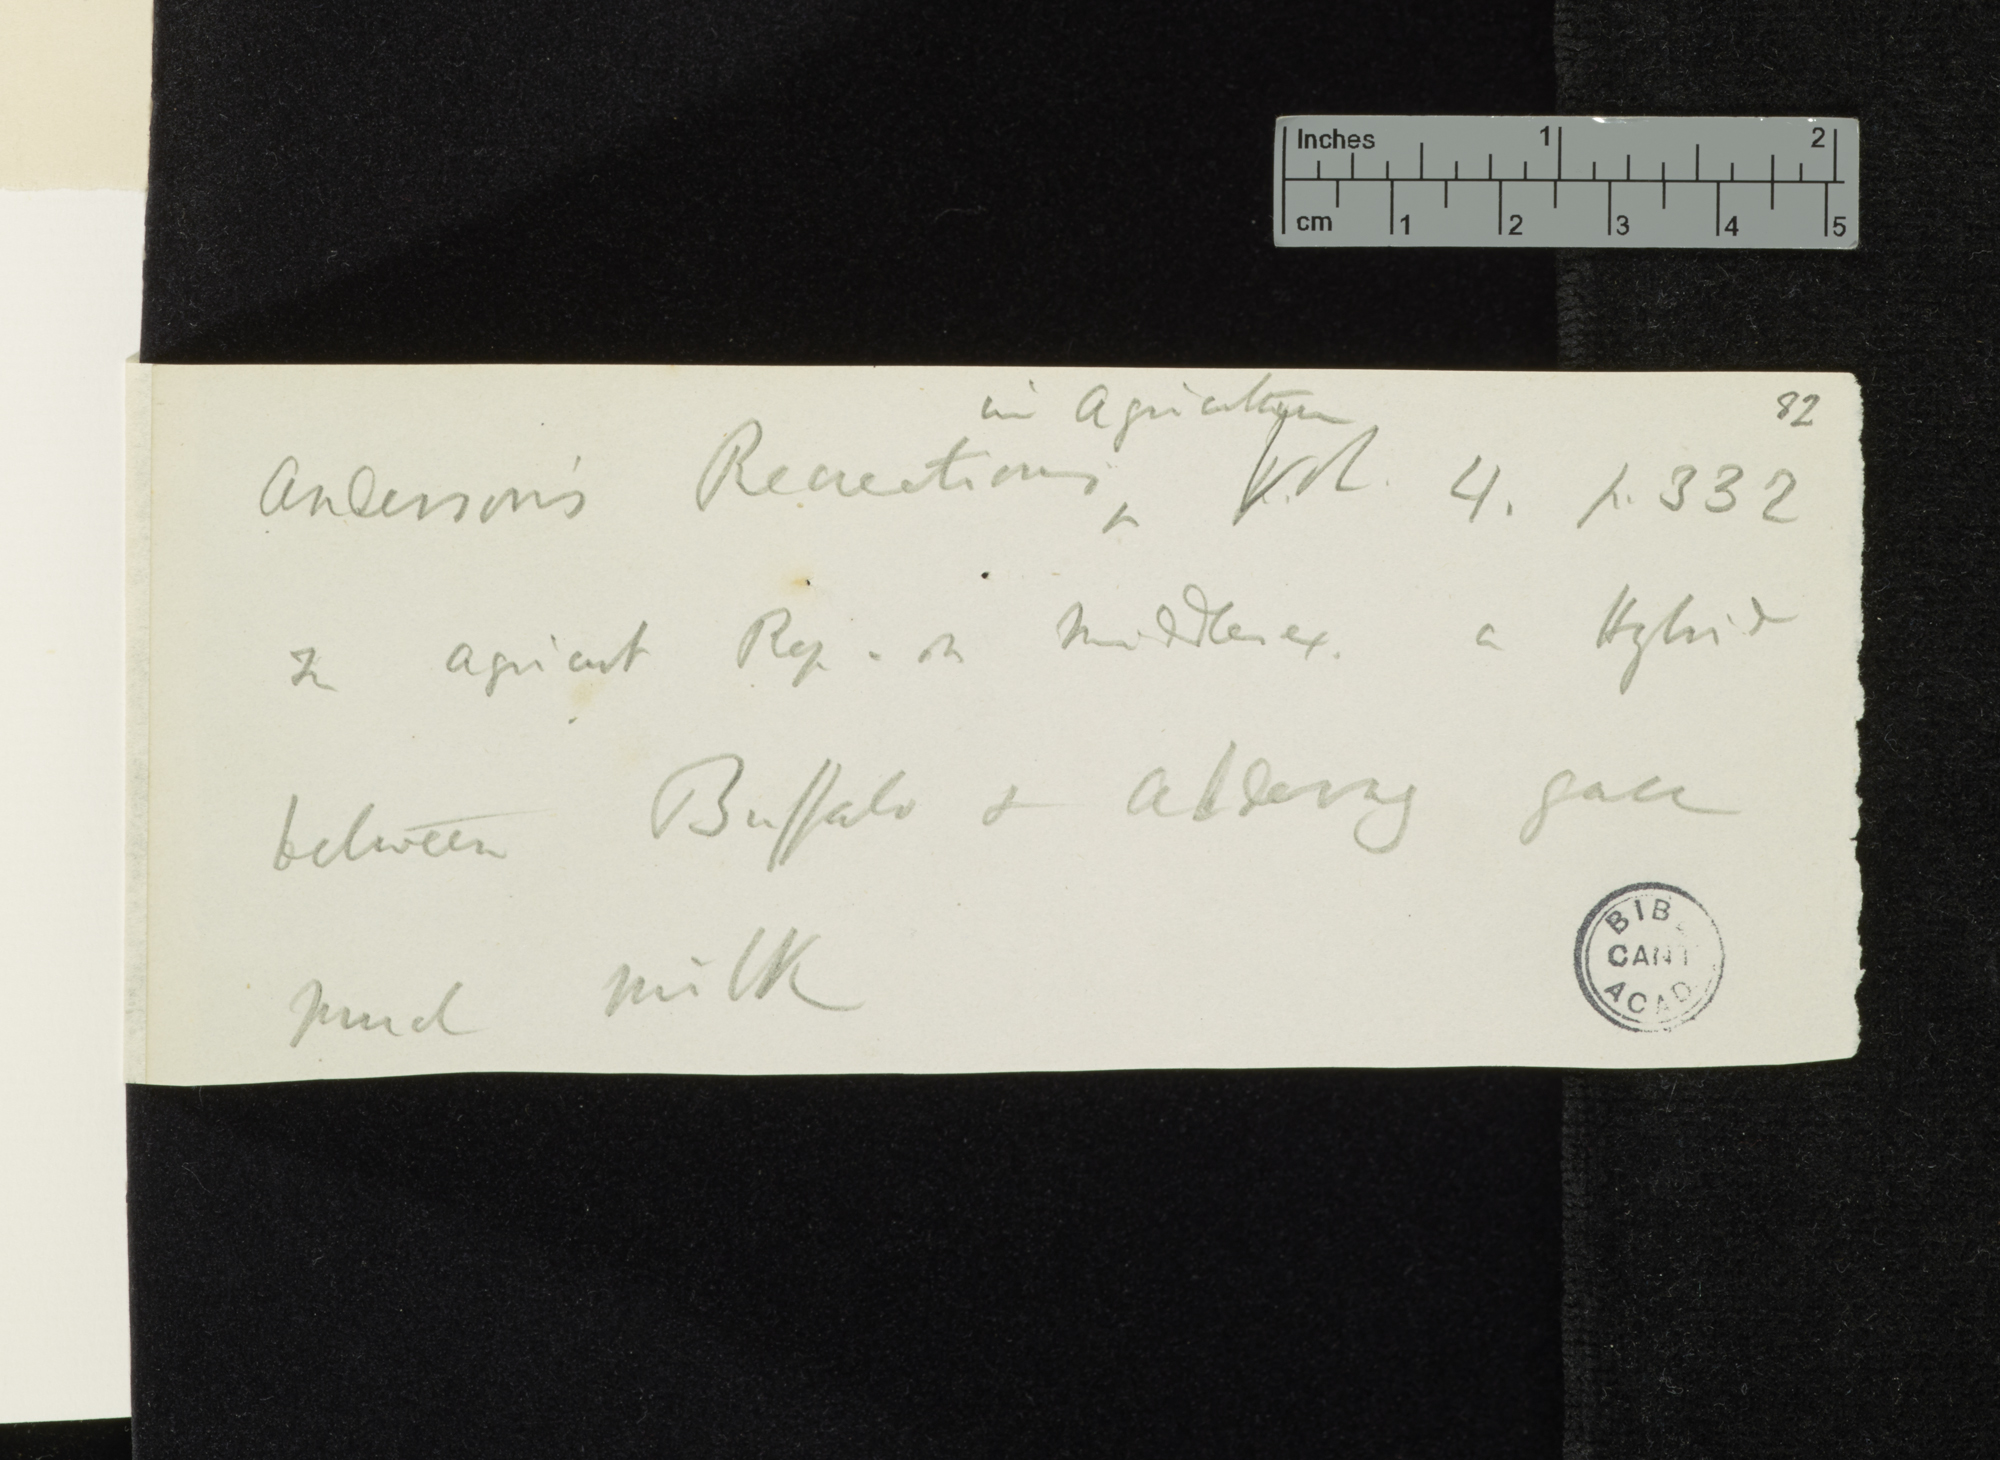 82
in Agriculture
Anderson's Recreations ‸ Vol. 4. p. 332
In Agricult Rep. on Middlesex. a Hybrid
between Buffalo & Alderney gave
much milk
BIB
CANT
ACAD
Inches 1 2
cm 1 2 3 4 5